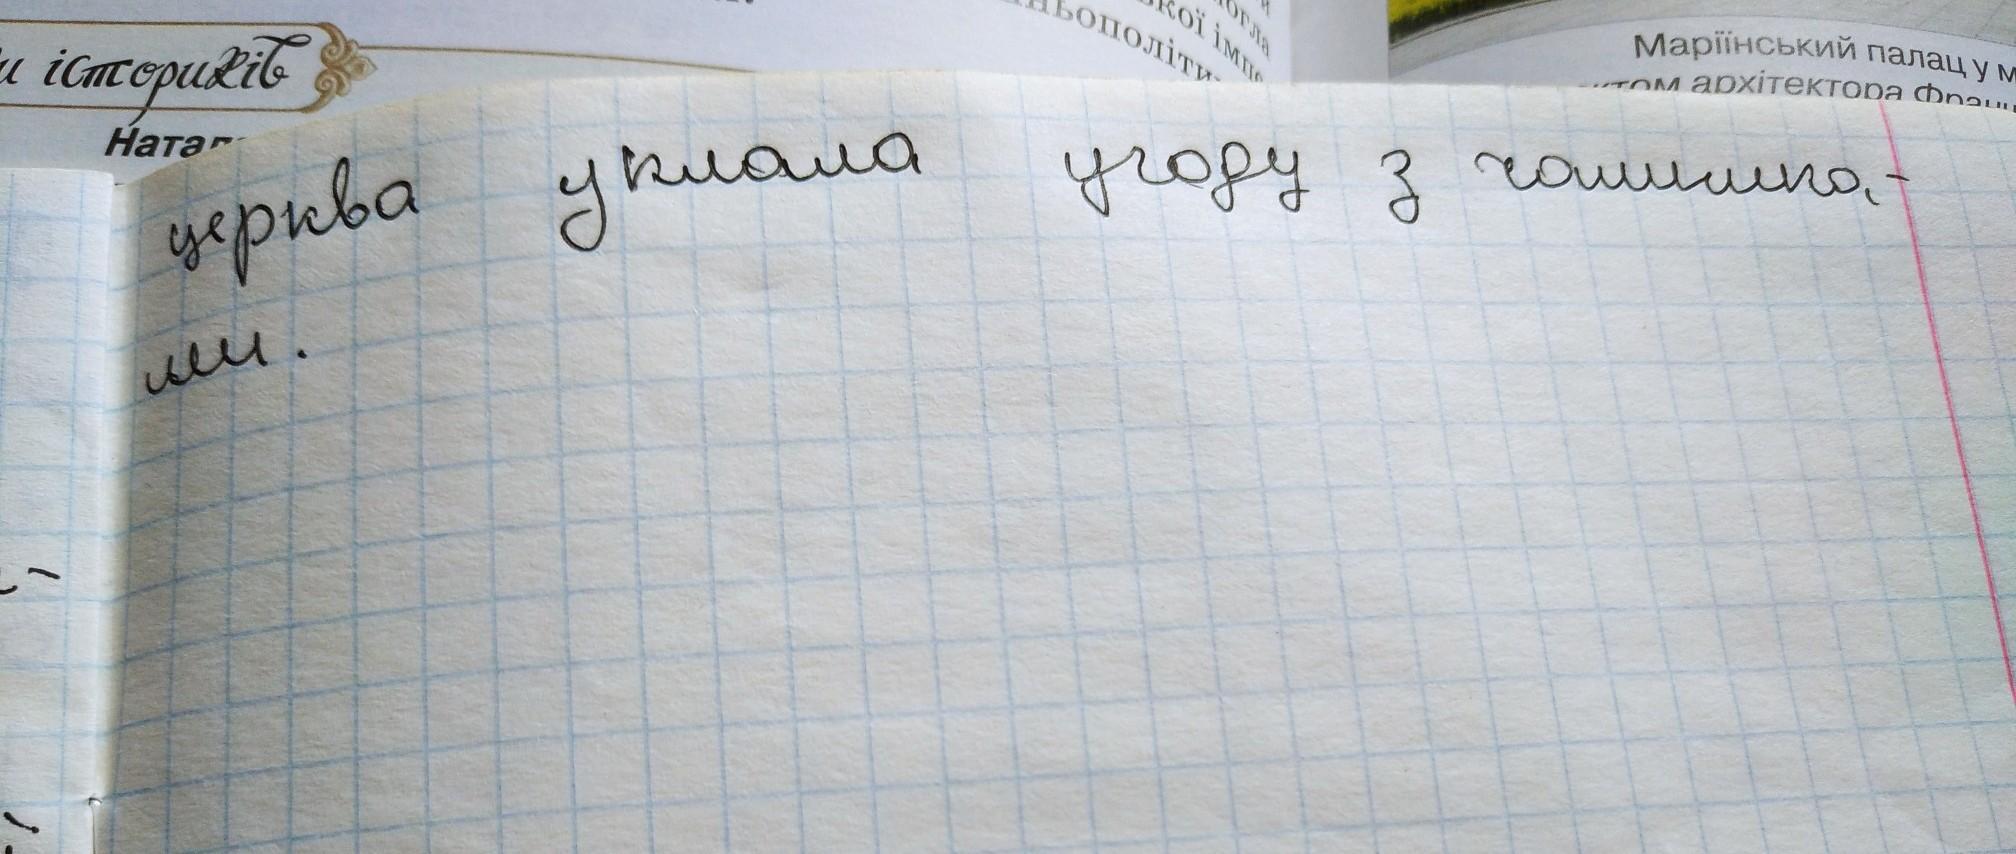 и істориків
Натал
огла
кої імпе
ньополіти
Маріїнський палац у м
ктом архітектора Франц
церква уклала угоду з чашника-
ми.